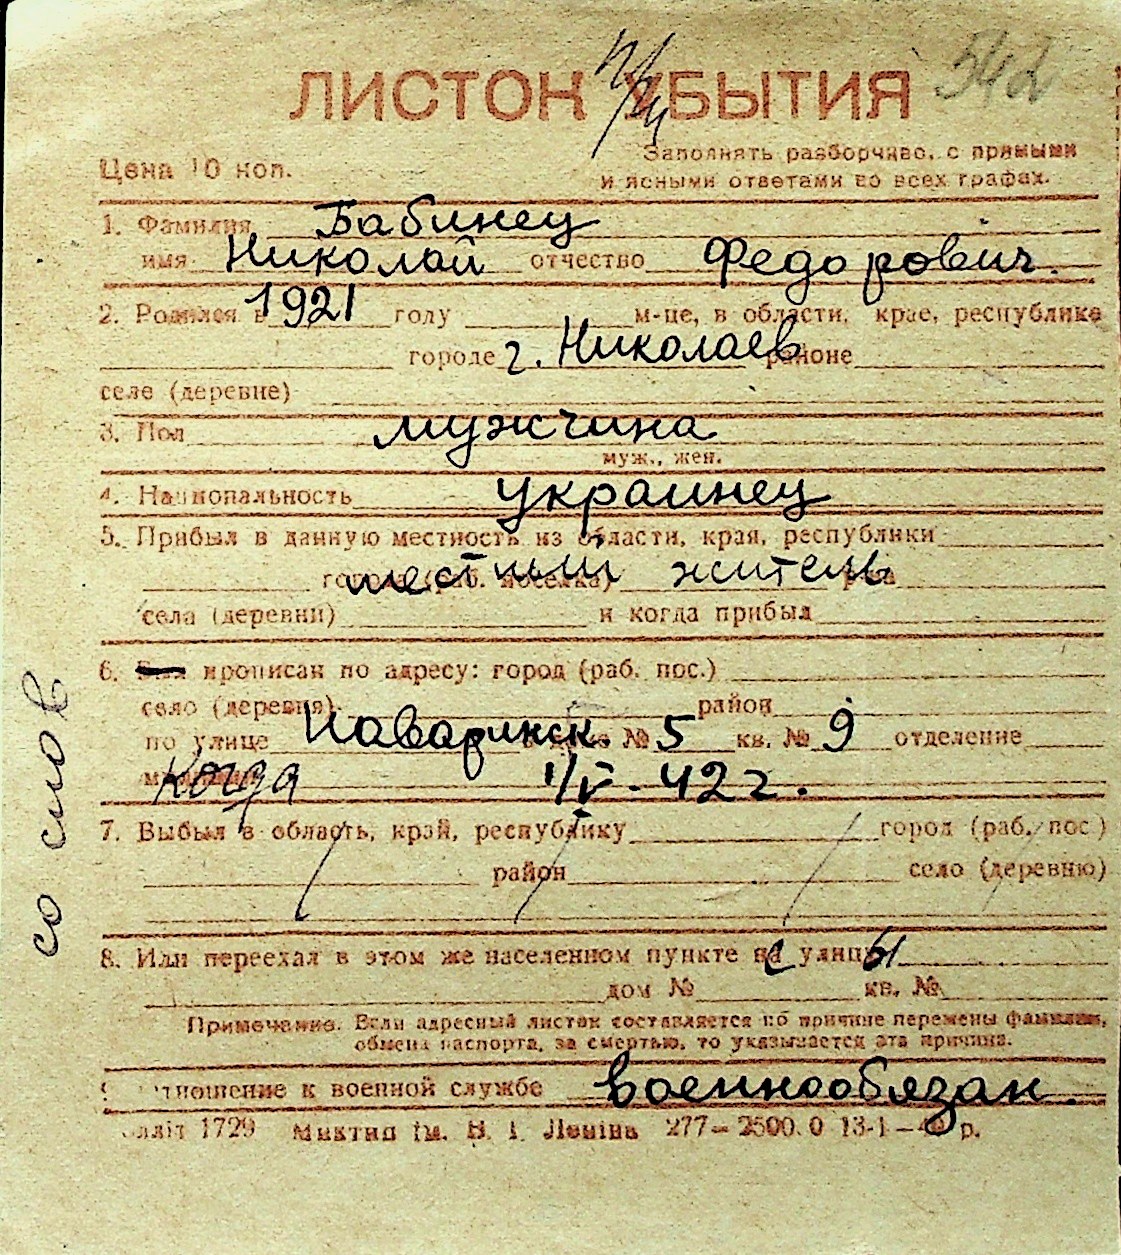 542
ЛИСТОК УБЫТИЯ
Цена 10 коп.
Заполнять разборчиво, с прямыми
и ясными ответами во всех графах.
1. Фамилия Бабинец
имя Николай отчество Федорович.
2. Родился в 1921 году м-це, в области, крае, республике
городе г. Николаев районе
селе (деревне)
3. Пол мужчина
муж., жен.
4. Национальность украинец
5. Прибыл в данную местность из области, края, республики
города (раб. поселка) местный житель
села (деревни) и когда прибыл
6. прописан по адресу: город (раб. пос.)
село (деревня) район
по улице Наваринск. в доме № 5 кв. № 9 отделение
Когда 1/V-42 г.
со слов
7. Выбыл в область, край, республику город (раб. пос.)
район село (деревню)
8. Или переехал в этом же населенном пункте с улицы
дом № кв. №
Примечание. Если адресный листок составляется по причине перемены фамилии,
обмена паспорта, за смертью, то указывается эта причина.
отношение к военной службе военнообязан.
1729 Миктип ім. В. І. Леніна 277-2500.0 13-1-40 р.